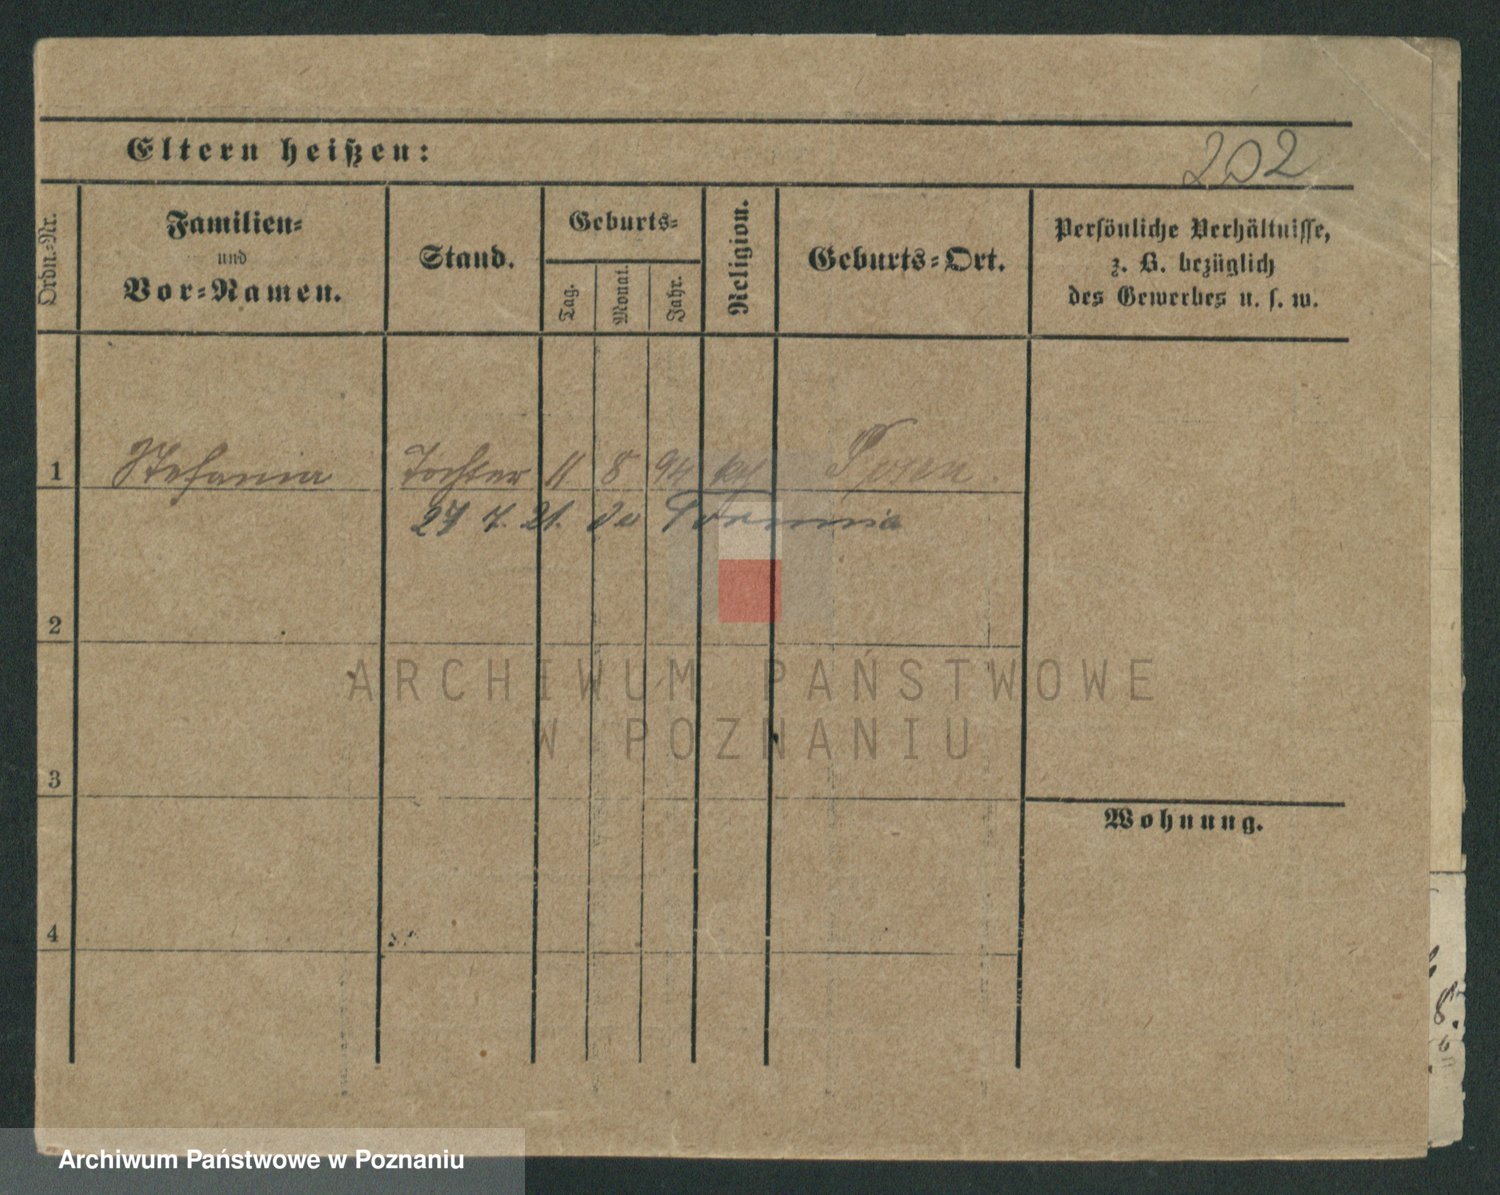 Eltern heißen:
202
Ordn.-Nr.
Familien-
und
Vor-Namen.
Stand.
Geburts-
Tag.
Monat.
Jahr.
Religion.
Geburts-Ort.
Persönliche Verhältnisse,
z. B. bezüglich
des Gewerbes u. s. w.
1 Stefania Tochter 11 8 94 kth Posen.
27 7. 21. do Torunia
2
3
Wohnung.
4
ARCHIWUM PAŃSTWOWE
W POZNANIU
Archiwum Państwowe w Poznaniu